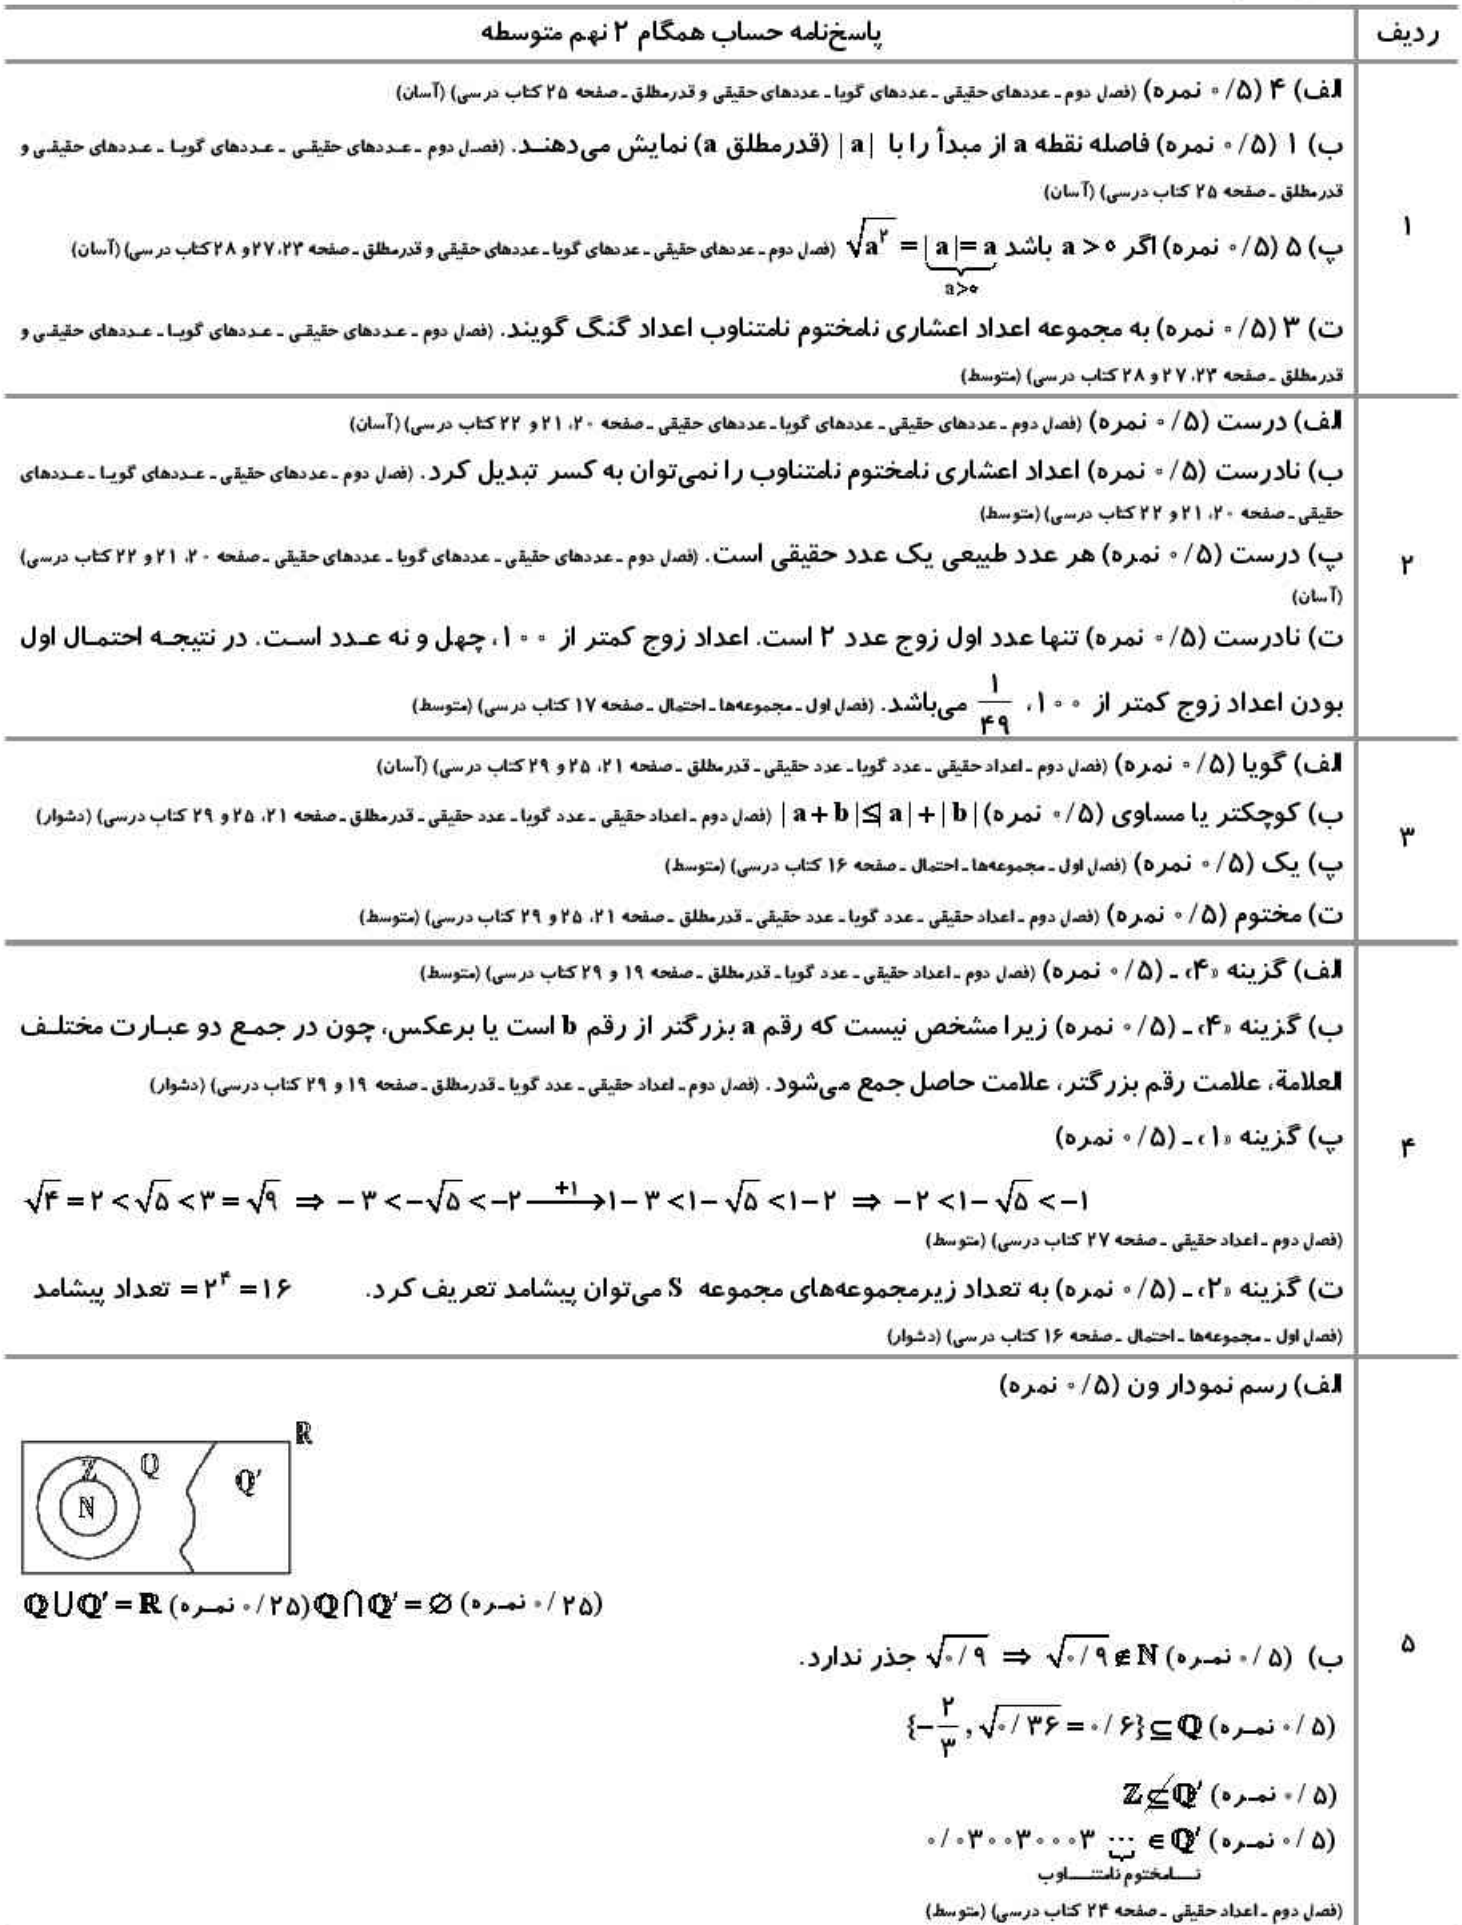 ردیف	پاسخ‌نامه حساب همگام ۲ نهم متوسطه
۱
الف) ۴ (۰/۵ نمره) (فصل دوم ـ عددهای حقیقی ـ عددهای گویا ـ عددهای حقیقی و قدرمطلق ـ صفحه ۲۵ کتاب درسی) (آسان)
ب) ۱ (۰/۵ نمره) فاصله نقطه a از مبدأ را با |a| (قدرمطلق a) نمایش می‌دهنـد. (فصـل دوم ـ عـددهای حقیقـی ـ عـددهای گویـا ـ عـددهای حقیقـی و
قدرمطلق ـ صفحه ۲۵ کتاب درسی) (آسان)
پ) ۵ (۰/۵ نمره) اگر a > ۰ باشد √a² = |a| = a (فصل دوم ـ عددهای حقیقی ـ عددهای گویا ـ عددهای حقیقی و قدرمطلق ـ صفحه ۲۳، ۲۷ و ۲۸ کتاب درسی) (آسان)
a>۰
ت) ۳ (۰/۵ نمره) به مجموعه اعداد اعشاری نامختوم نامتناوب اعداد گنگ گویند. (فصل دوم ـ عـددهای حقیقـی ـ عـددهای گویـا ـ عـددهای حقیقـی و
قدرمطلق ـ صفحه ۲۳، ۲۷ و ۲۸ کتاب درسی) (متوسط)
۲
الف) درست (۰/۵ نمره) (فصل دوم ـ عددهای حقیقی ـ عددهای گویا ـ عددهای حقیقی ـ صفحه ۲۰، ۲۱ و ۲۲ کتاب درسی) (آسان)
ب) نادرست (۰/۵ نمره) اعداد اعشاری نامختوم نامتناوب را نمی‌توان به کسر تبدیل کرد. (فصل دوم ـ عددهای حقیقی ـ عـددهای گویـا ـ عـددهای
حقیقی ـ صفحه ۲۰، ۲۱ و ۲۲ کتاب درسی) (متوسط)
پ) درست (۰/۵ نمره) هر عدد طبیعی یک عدد حقیقی است. (فصل دوم ـ عددهای حقیقی ـ عددهای گویا ـ عددهای حقیقی ـ صفحه ۲۰، ۲۱ و ۲۲ کتاب درسی)
(آسان)
ت) نادرست (۰/۵ نمره) تنها عدد اول زوج عدد ۲ است. اعداد زوج کمتر از ۱۰۰، چهل و نه عـدد اسـت. در نتیجـه احتمـال اول
بودن اعداد زوج کمتر از ۱۰۰، ۱/۴۹ می‌باشد. (فصل اول ـ مجموعه‌ها ـ احتمال ـ صفحه ۱۷ کتاب درسی) (متوسط)
۳
الف) گویا (۰/۵ نمره) (فصل دوم ـ اعداد حقیقی ـ عدد گویا ـ عدد حقیقی ـ قدرمطلق ـ صفحه ۲۱، ۲۵ و ۲۹ کتاب درسی) (آسان)
ب) کوچکتر یا مساوی (۰/۵ نمره) |a+b|≤|a|+|b| (فصل دوم ـ اعداد حقیقی ـ عدد گویا ـ عدد حقیقی ـ قدرمطلق ـ صفحه ۲۱، ۲۵ و ۲۹ کتاب درسی) (دشوار)
پ) یک (۰/۵ نمره) (فصل اول ـ مجموعه‌ها ـ احتمال ـ صفحه ۱۶ کتاب درسی) (متوسط)
ت) مختوم (۰/۵ نمره) (فصل دوم ـ اعداد حقیقی ـ عدد گویا ـ عدد حقیقی ـ قدرمطلق ـ صفحه ۲۱، ۲۵ و ۲۹ کتاب درسی) (متوسط)
۴
الف) گزینه «۴» ـ (۰/۵ نمره) (فصل دوم ـ اعداد حقیقی ـ عدد گویا ـ قدرمطلق ـ صفحه ۱۹ و ۲۹ کتاب درسی) (متوسط)
ب) گزینه «۴» ـ (۰/۵ نمره) زیرا مشخص نیست که رقم a بزرگتر از رقم b است یا برعکس، چون در جمـع دو عبـارت مختلـف
العلامة، علامت رقم بزرگتر، علامت حاصل جمع می‌شود. (فصل دوم ـ اعداد حقیقی ـ عدد گویا ـ قدرمطلق ـ صفحه ۱۹ و ۲۹ کتاب درسی) (دشوار)
پ) گزینه «۱» ـ (۰/۵ نمره)
√۴ = ۲ < √۵ < ۳ = √۹ ⇒ −۳ < −√۵ < −۲ —+۱→ ۱−۳ < ۱−√۵ < ۱−۲ ⇒ −۲ < ۱−√۵ < −۱
(فصل دوم ـ اعداد حقیقی ـ صفحه ۲۷ کتاب درسی) (متوسط)
ت) گزینه «۲» ـ (۰/۵ نمره) به تعداد زیرمجموعه‌های مجموعه S می‌توان پیشامد تعریف کرد. ۱۶ = ۲⁴ = تعداد پیشامد
(فصل اول ـ مجموعه‌ها ـ احتمال ـ صفحه ۱۶ کتاب درسی) (دشوار)
۵
الف) رسم نمودار ون (۰/۵ نمره)
ℝ
ℤ ℚ ℚ′
ℕ
ℚ∪ℚ′ = ℝ (۰/۲۵ نمـره) ℚ∩ℚ′ = ∅ (۰/۲۵ نمـره)
ب) (۰/۵ نمـره) √۰/۹ ⇒ √۰/۹ ∉ ℕ جذر ندارد.
{−۲/۳ , √۰/۳۶ = ۰/۶} ⊆ ℚ (۰/۵ نمـره)
ℤ ⊈ ℚ′ (۰/۵ نمـره)
۰/۰۳۰۰۳۰۰۰۳ ... ∈ ℚ′ (۰/۵ نمـره)
نـــامختوم نامتنـــاوب
(فصل دوم ـ اعداد حقیقی ـ صفحه ۲۴ کتاب درسی) (متوسط)